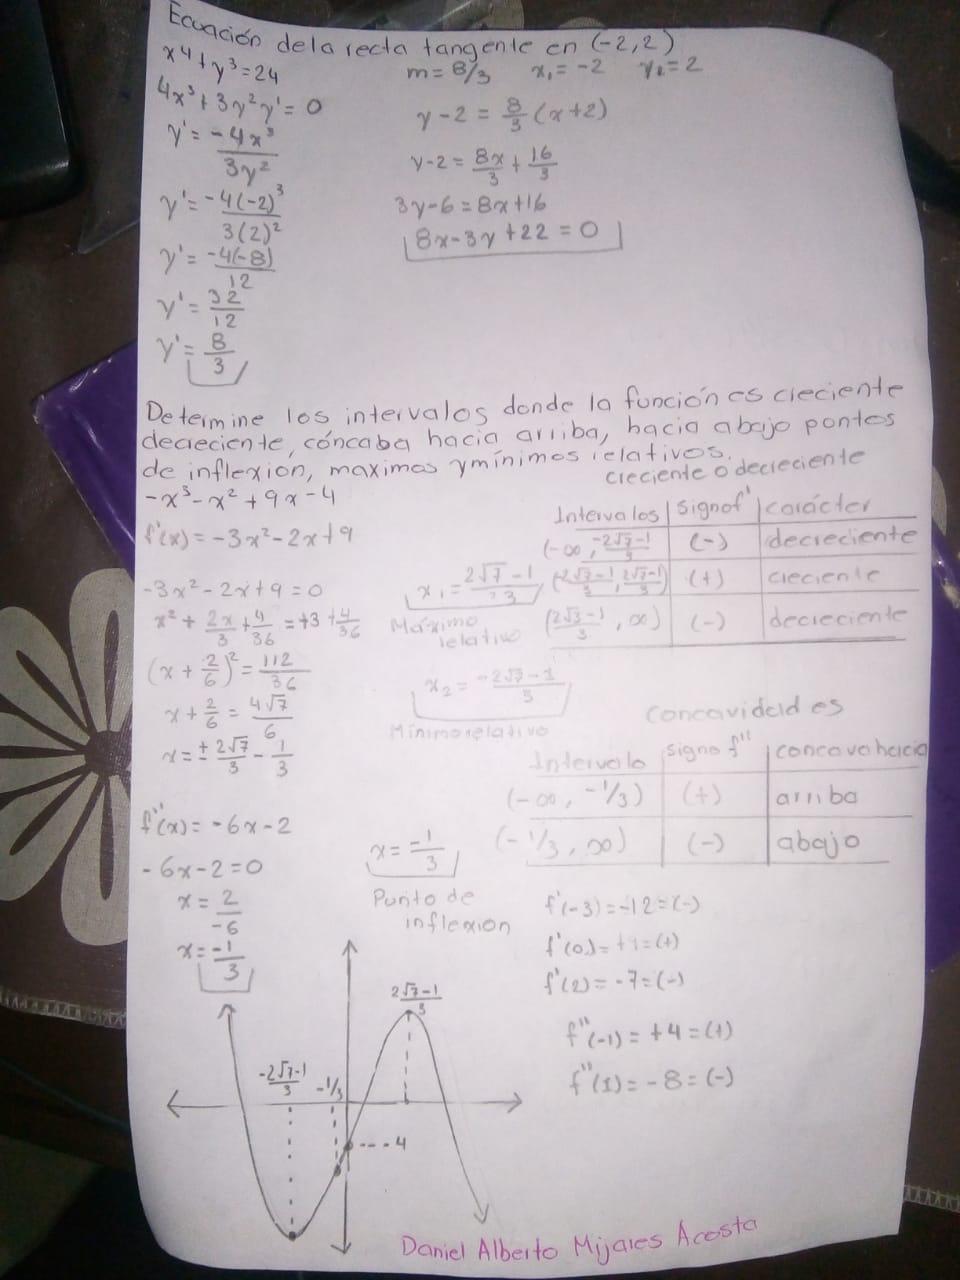 Ecuación de la recta tangente en (-2,2)
x⁴+y³=24
4x³+3y²y'=0
y'= -4x³/3y²
y'= -4(-2)³/3(2)²
y'= -4(-8)/12
y'= 32/12
y'= 8/3
m=8/3 x₁=-2 y₁=2
y-2 = 8/3 (x+2)
y-2 = 8x/3 + 16/3
3y-6=8x+16
8x-3y+22=0
Determine los intervalos donde la función es creciente
decreciente, cóncaba hacia arriba, hacia abajo pontos
de inflexion, maximos y mínimos relativos.
-x³-x²+9x-4
f'(x)=-3x²-2x+9
-3x²-2x+9=0
x²+2x/3+4/36=+3+4/36
(x+2/6)²=112/36
x+2/6=4√7/6
x=±2√7/3-1/3
f''(x)=-6x-2
-6x-2=0
x=2/-6
x=-1/3
x₁=2√7-1/3
Máximo
relativo
x₂=-2√7-1/3
Minimo relativo
x=-1/3
Punto de
inflexion
creciente o decreciente
Intervalos signo f' carácter
(-∞, -2√7-1/3) (-) decreciente
(-2√7-1/3, 2√7-1/3) (+) creciente
(2√3-1/3, ∞) (-) decreciente
concavidades
Intervalo signo f'' concavo hacia
(-∞, -1/3) (+) arriba
(-1/3, ∞) (-) abajo
f'(-3)=-12=(-)
f'(2)=-7=(-)
f''(-1)=+4=(+)
f''(1)=-8=(-)
2√7-1/3
-2√7-1/3
-1/3
---4
Daniel Alberto Mijares Acosta